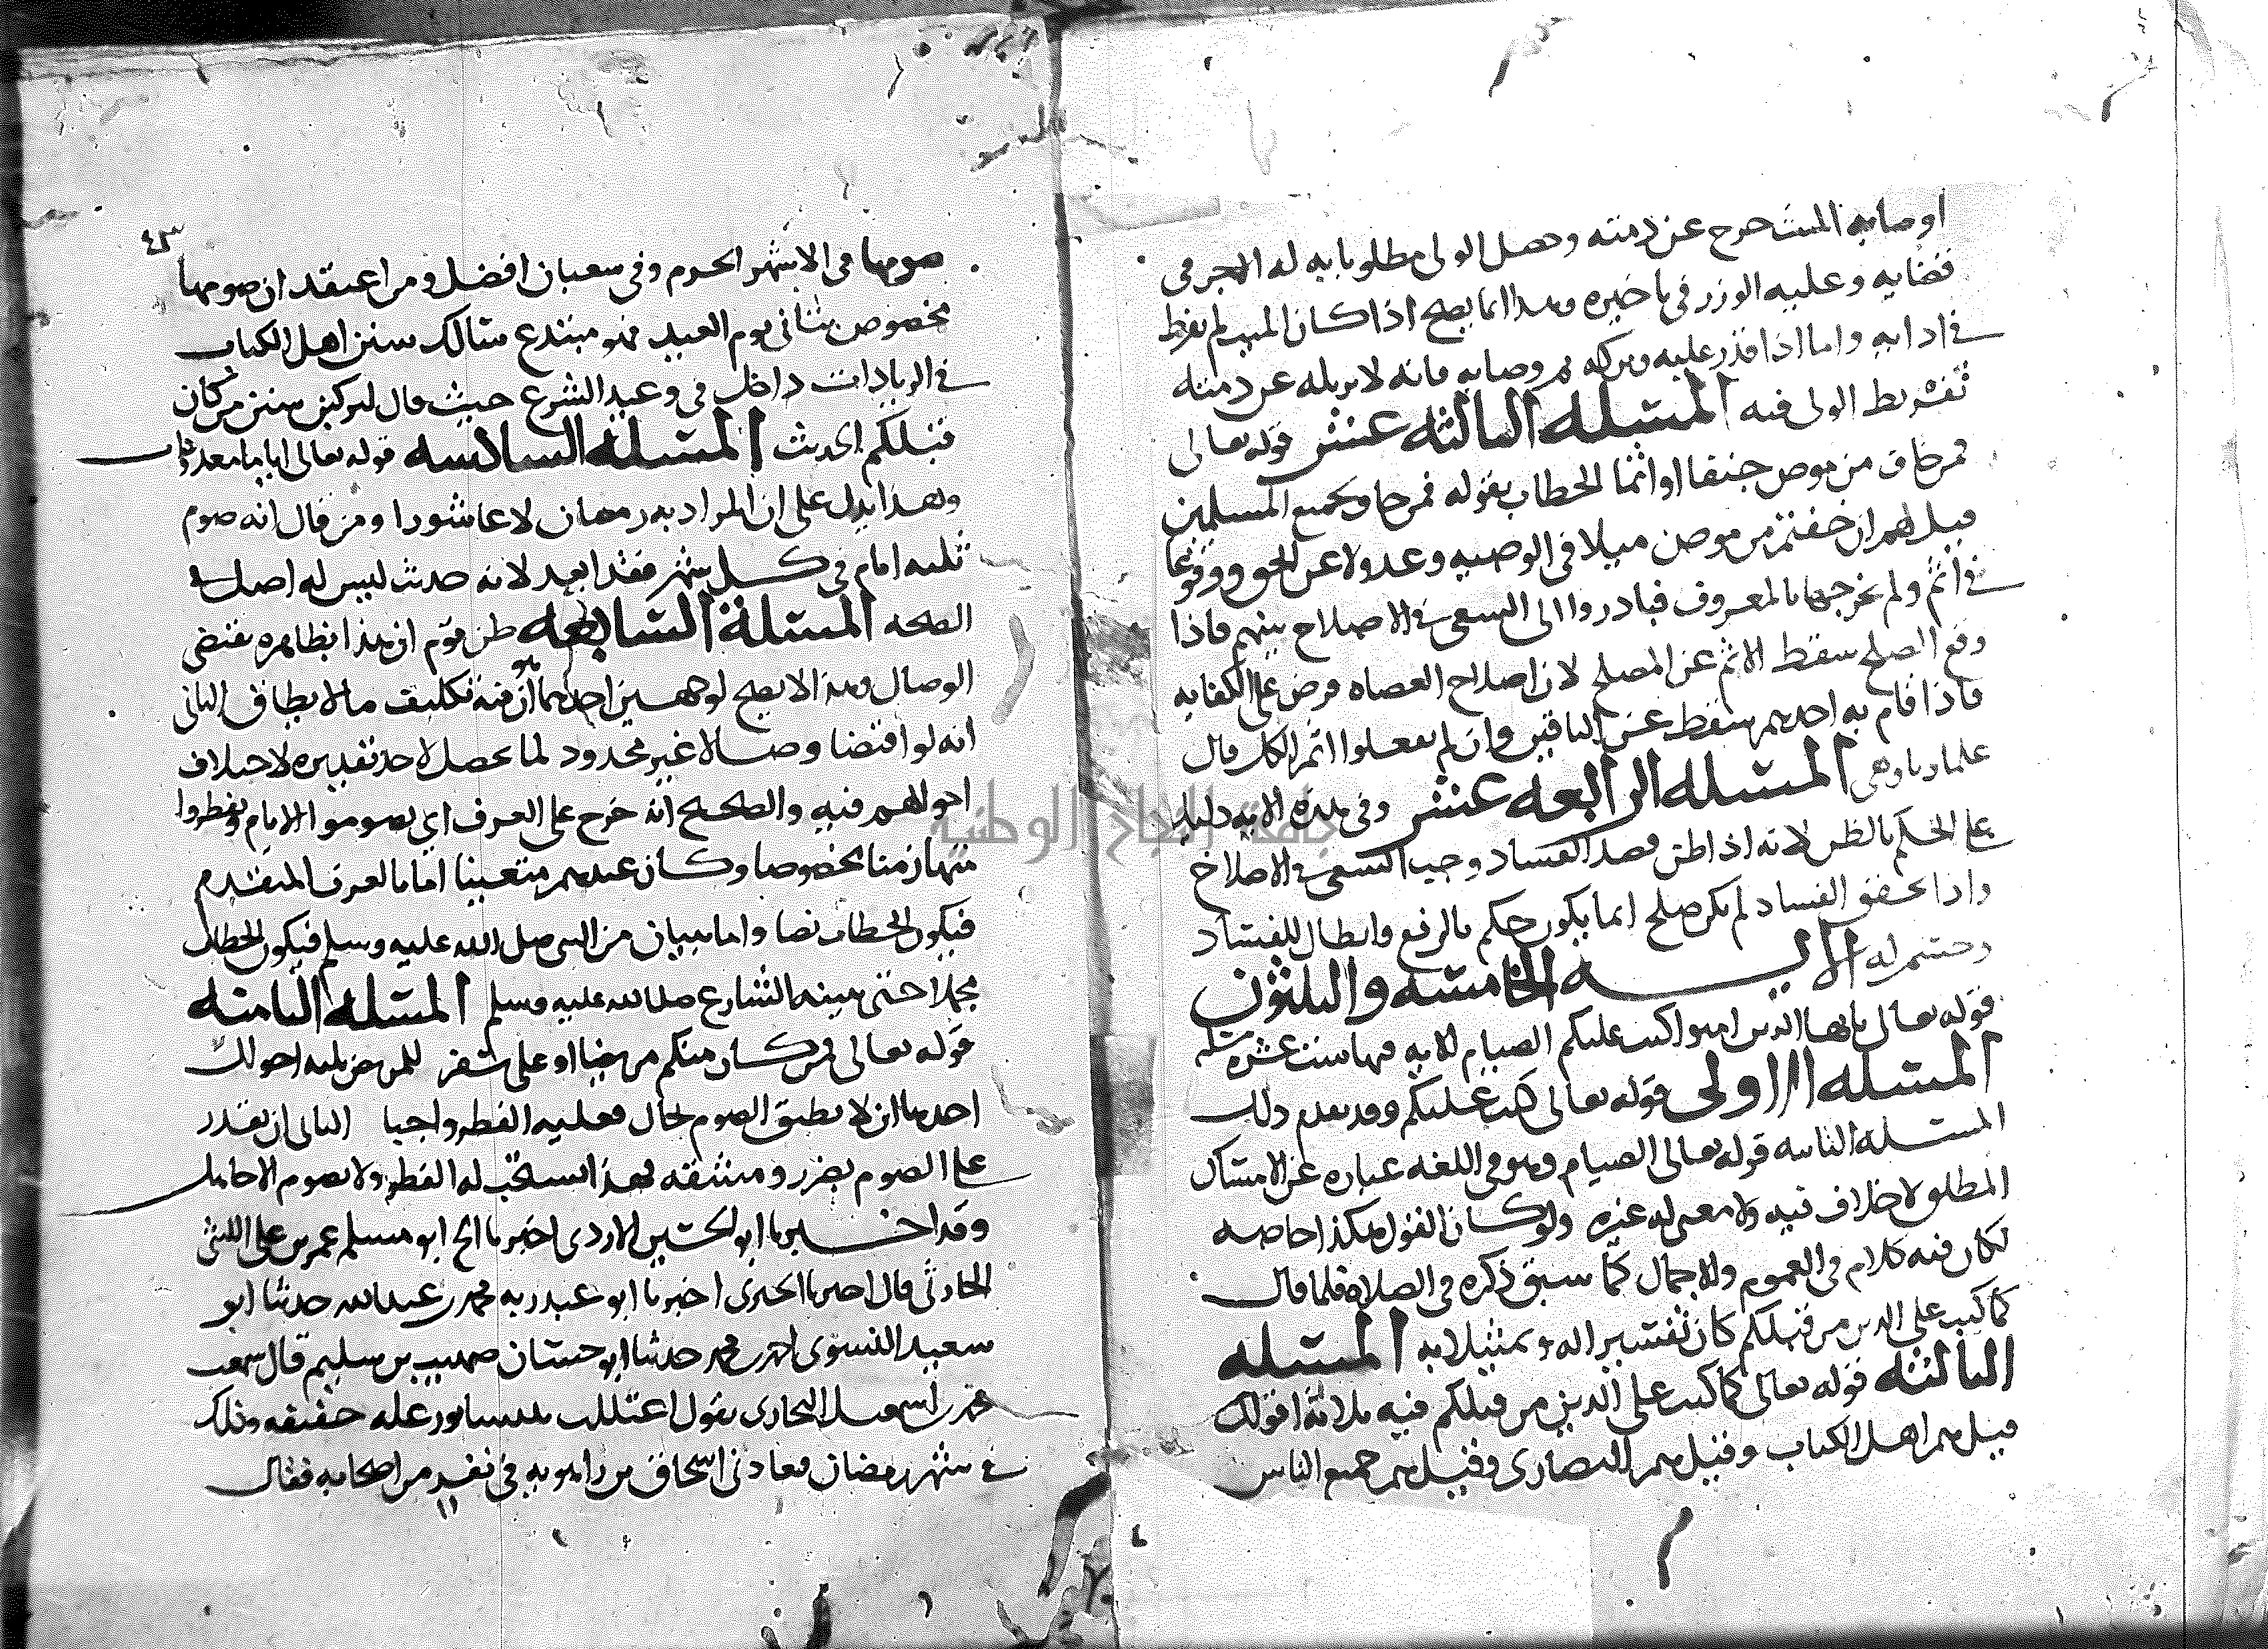 اوصى به الميت خرج عن ذمته وحصل الولى مطلوبا به له الاجر فى
قضايه وعليه الوزر فى تاخيره وهذا انما يصح اذا كان الميت لم يفرط
فى ادايه واما اذا قدر عليه وتركه ثم وصى به فانه لا يزيله عن ذمته
تفريط الولى فيه المسئله الثالثه عشر قوله تعالى
فمن خاف من موص جنفا او اثما الخطاب بقوله فمن خاف لجميع المسلمين
قيل لهم ان خفتم من موص ميلا فى الوصيه وعدولا عن الحق ووقوعا
فى اثم ولم يخرجها بالمعروف فبادروا الى السعى فى الاصلاح بينهم فاذا
وقع الصلح سقط الاثم عن المصلح لان اصلاح العصاه فرض على الكفايه
فاذا قام به احدهم سقط عن الباقين وان لم يفعلوا اثم الكل قال
علماونا وهى المسئله الرابعه عشر وفى هذه الايه دليل
على الحكم بالظن لانه اذا ظن قصد الفساد وجب السعى فى الاصلاح
واذا تحقق الفساد لم يكن صلح انما يكون حكم بالدفع وابطال للفساد
وحسم له الايه الخامسه والثلثون
قوله تعالى يايها الذين امنوا كتب عليكم الصيام الايه فيها ست عشره مسئله
المسئله الاولى قوله تعالى كتب عليكم وقد تقدم ذلك
المسئله الثانيه قوله تعالى الصيام وهو فى اللغه عباره عن الامساك
المطلق لا خلاف فيه ولا معنى له غيره ولو كان القول هكذا خاصه
لكان فيه كلام فى العموم والاجمال كما سبق ذكره فى الصلاه فلما قال
كما كتب على الذين من قبلكم كان تفسيرا له وتمثيلا به المسئله
الثالثه قوله تعالى كما كتب على الذين من قبلكم فيه ثلاثة اقوال
قيل هم اهل الكتاب وقيل هم النصارى وقيل هم جميع الناس
٤٣
صومها فى الاشهر الحرم وفى شعبان افضل ومن اعتقد ان صومها
مخصوص بثانى يوم العيد فهو مبتدع سالك سنن اهل الكتاب
فى الزيادات داخل فى وعيد الشرع حيث قال لتركبن سنن من كان
قبلكم الحديث المسئلة السادسه قوله تعالى اياما معدودات
وهذا يدل على ان المراد به رمضان لا عاشورا ومن قال انه صوم
ثلثه ايام فى كل شهر فقد ابعد لانه حديث ليس له اصل فى
الصحه المسئلة السابعه ظن قوم ان هذا بظاهره يقتضى
الوصال وهذا لا يصح لوجهين احدهما ان فيه تكليف ما لا يطاق الثانى
انه لو اقتضا وصالا غير محدود لما تحصل لاحد تقديره لاختلاف
احوالهم فيه والصحيح انه خرج على العرف اى يصوموا الايام ويفطروا
منها زمنا مخصوصا وكان عندهم متعينا اما بالعرف المتقدم
فيكون الخطاب نصا واما ببيان من النبى صلى الله عليه وسلم فيكون الخطاب
مجملا حتى بينه الشارع صلى الله عليه وسلم المسئله الثامنه
قوله تعالى فمن كان منكم مريضا او على سفر للمريض ثلثه احوال
احدها ان لا يطيق الصوم بحال فعليه الفطر واجبا الثانى ان يقدر
على الصوم بضرر ومشقه فهذا يستحب له الفطر ولا يصوم الا جاهل
وقد اخبرنا ابو الحسين الازدى اخبرنا الشيخ ابو مسلم عمر بن على الليثى
الحارثى قال اخبرنا الحيرى اخبرنا ابو عبد ربه محمد بن عبد الله حدثنا ابو
سعيد النسوى احمد بن محمد حدثنا ابو حسان صهيب بن سليم قال سمعت
محمد بن اسمعيل البخارى يقول اعتللت بنيسابور عله خفيفه وذلك
فى شهر رمضان فعادنى اسحاق بن راهويه فى نفر من اصحابه فقال
جامعة النجاح الوطنية